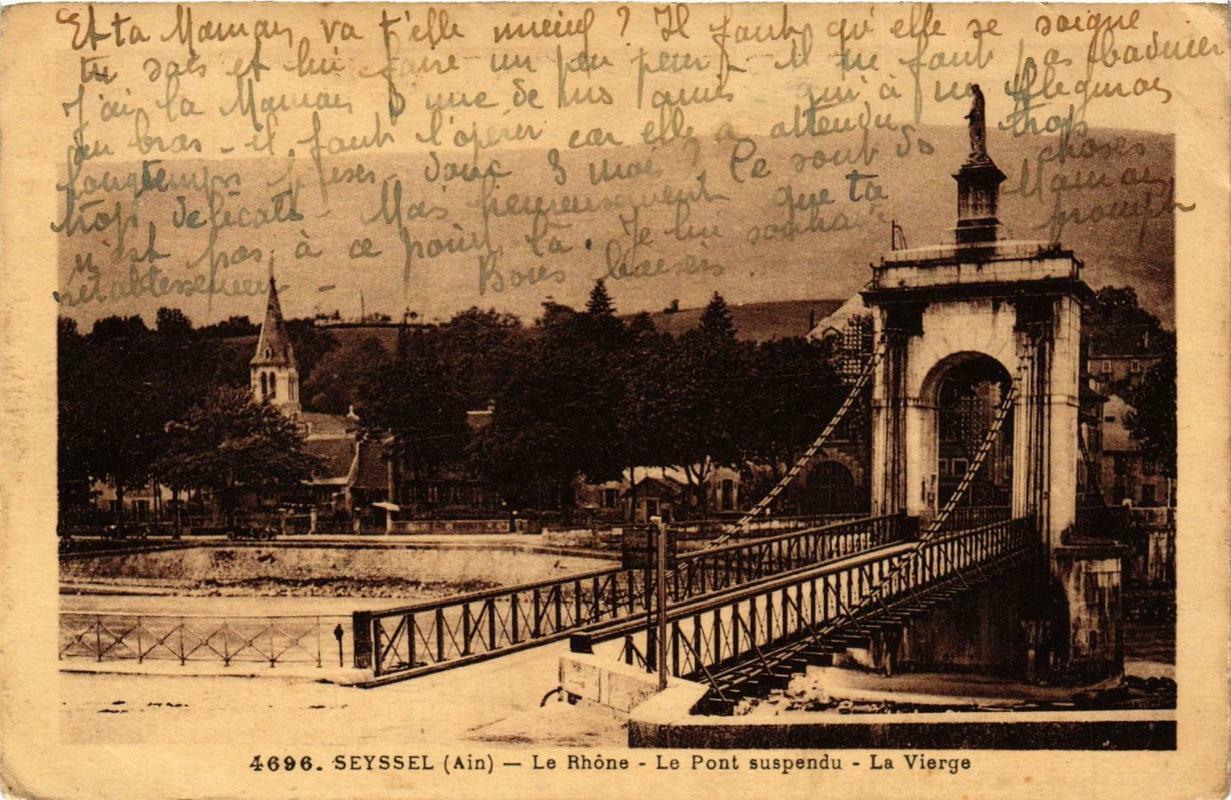 Et ta Maman va t'elle mieux ? Il faut qu'elle se soigne
tu sais et lui faire un peu peur - il ne faut pas badiner
J'ai la Maman d'une de mes amies qui a un flegmon
au bras - il faut l'opérer car elle a attendu trop
longtemps
trop délicats - Mais heureusement que ta Maman
n'est pas à ce point là. Je lui souhaite prompt
rétablissement - Bons baisers
4696. SEYSSEL (Ain) — Le Rhône - Le Pont suspendu - La Vierge